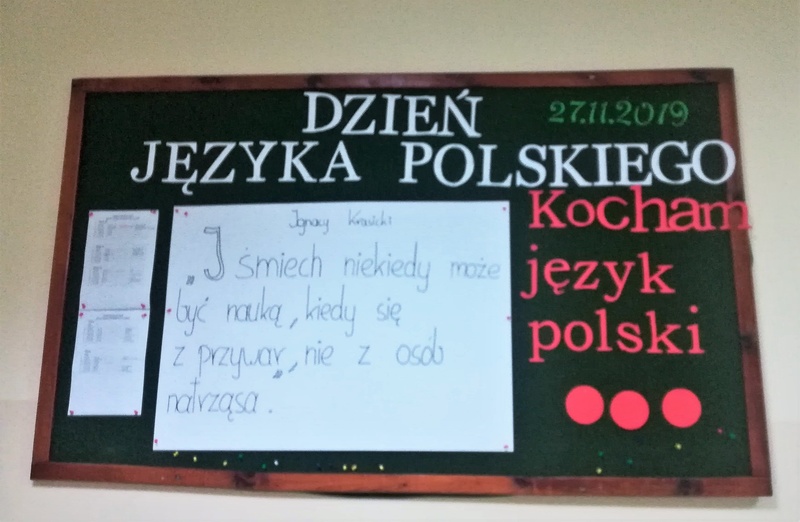 DZIEŃ
27.11.2019
JĘZYKA POLSKIEGO
Ignacy Krasicki
„I śmiech niekiedy może
być nauką, kiedy się
z przywar„ nie z osób
natrząsa.
Kocham
język
polski